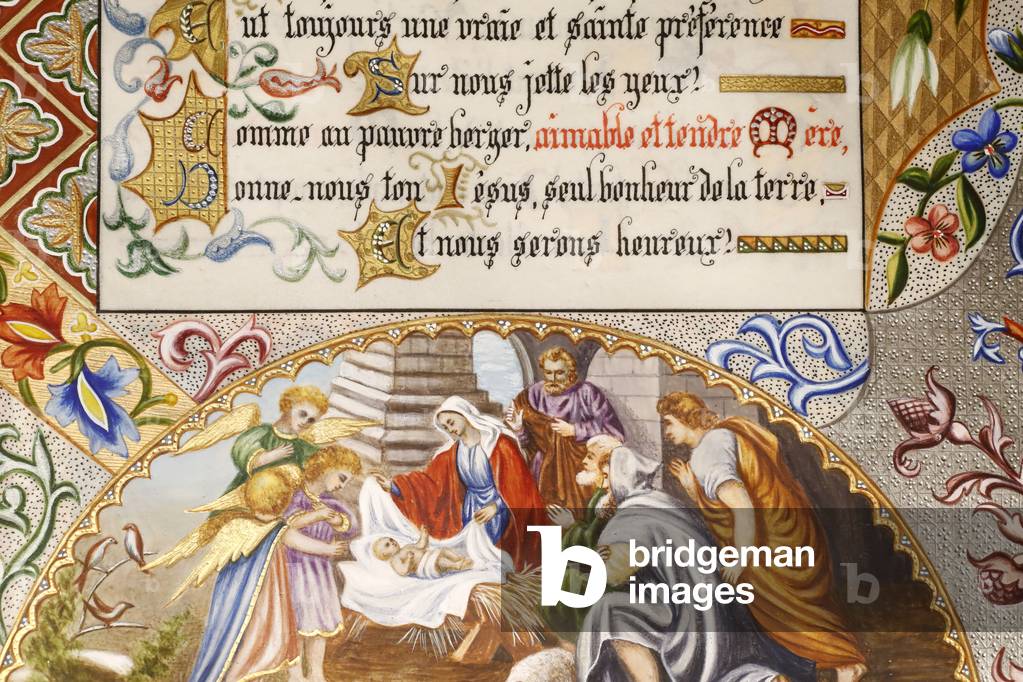 Eut toujours une vraie et sainte préférence
Sur nous jette les yeux!
Comme au pauvre berger, aimable et tendre Mère,
Donne-nous ton Iésus, seul bonheur de la terre,
Et nous serons heureux!
bridgeman
images